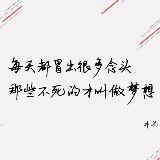 每天都冒出很多念头
那些不死的才叫做梦想